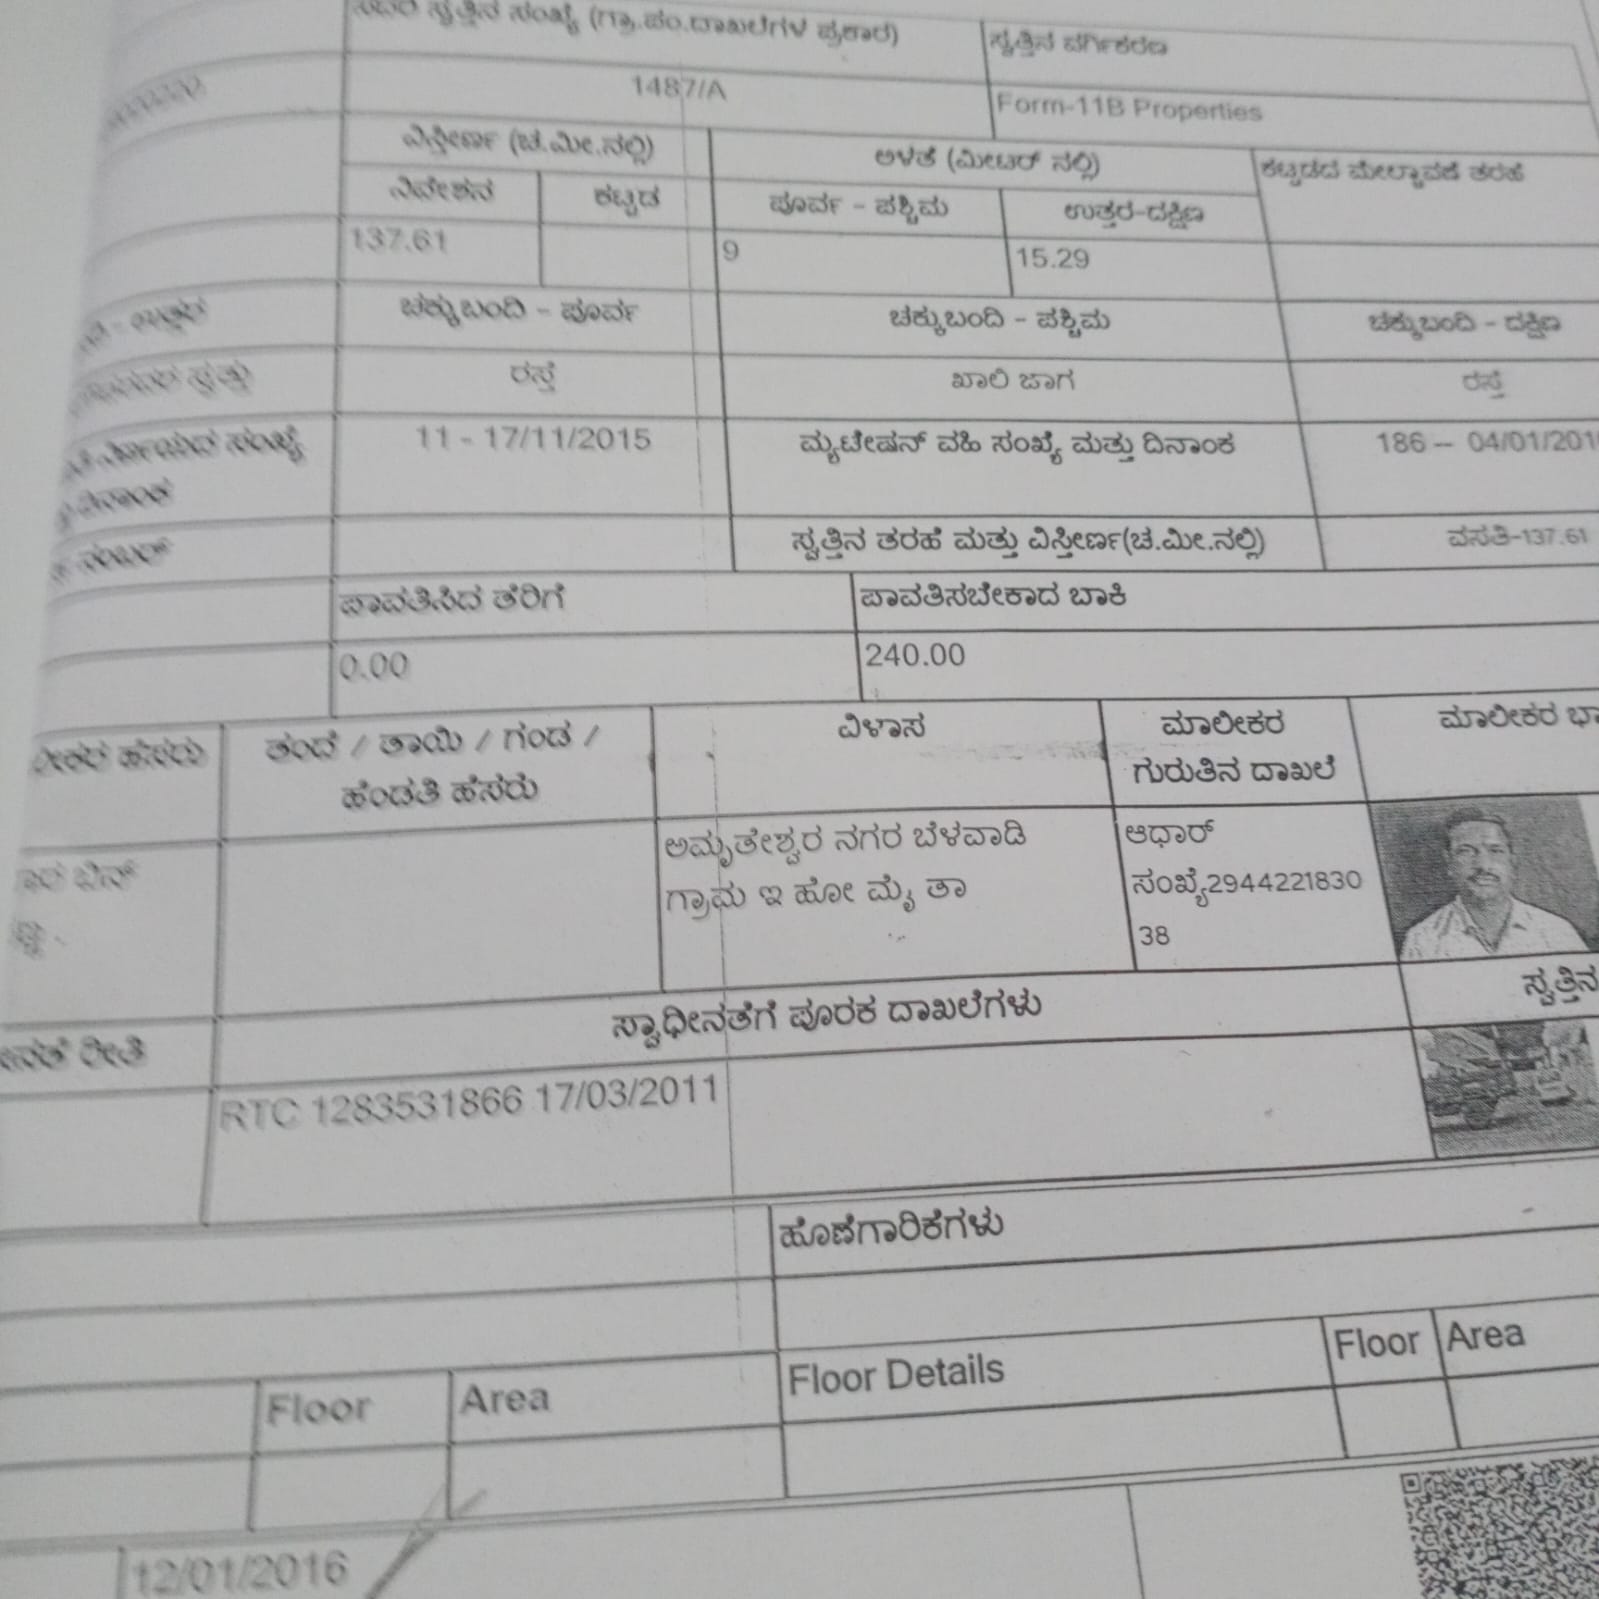 ಸ್ವತ್ತಿನ ಸಂಖ್ಯೆ (ಗ್ರಾ.ಪಂ.ದಾಖಲೆಗಳ ಪ್ರಕಾರ) ಸ್ವತ್ತಿನ ವರ್ಗೀಕರಣ
1487/A Form-11B Properties
ವಿಸ್ತೀರ್ಣ (ಚ.ಮೀ.ನಲ್ಲಿ) ಅಳತೆ (ಮೀಟರ್ ನಲ್ಲಿ) ಕಟ್ಟಡದ ಮೇಲ್ಚಾವಣಿ ತರಹೆ
ನಿವೇಶನ ಕಟ್ಟಡ ಪೂರ್ವ - ಪಶ್ಚಿಮ ಉತ್ತರ-ದಕ್ಷಿಣ
137.61 9 15.29
ಚಕ್ಕುಬಂದಿ - ಪೂರ್ವ ಚಕ್ಕುಬಂದಿ - ಪಶ್ಚಿಮ ಚಕ್ಕುಬಂದಿ - ದಕ್ಷಿಣ
ರಸ್ತೆ ಖಾಲಿ ಜಾಗ ರಸ್ತೆ
ಸಂಖ್ಯೆ 11 - 17/11/2015 ಮ್ಯುಟೇಷನ್ ವಹಿ ಸಂಖ್ಯೆ ಮತ್ತು ದಿನಾಂಕ 186 - 04/01/201
ದಿನಾಂಕ
ನಂಬರ್ ಸ್ವತ್ತಿನ ತರಹೆ ಮತ್ತು ವಿಸ್ತೀರ್ಣ(ಚ.ಮೀ.ನಲ್ಲಿ) ವಸತಿ-137.61
ಪಾವತಿಸಿದ ತೆರಿಗೆ ಪಾವತಿಸಬೇಕಾದ ಬಾಕಿ
0.00 240.00
ಹೆಸರು ತಂದೆ / ತಾಯಿ / ಗಂಡ / ವಿಳಾಸ ಮಾಲೀಕರ ಮಾಲೀಕರ ಭಾ
ಹೆಂಡತಿ ಹೆಸರು ಗುರುತಿನ ದಾಖಲೆ
ಬಿನ್ ಅಮೃತೇಶ್ವರ ನಗರ ಬೆಳವಾಡಿ ಆಧಾರ್
ಗ್ರಾಮ ಇ ಹೋ ಮೈ ತಾ ಸಂಖ್ಯೆ2944221830
38
ರೀತಿ ಸ್ವಾಧೀನತೆಗೆ ಪೂರಕ ದಾಖಲೆಗಳು ಸ್ವತ್ತಿನ
RTC 1283531866 17/03/2011
ಹೊಣೆಗಾರಿಕೆಗಳು
Floor Area Floor Details Floor Area
12/01/2016